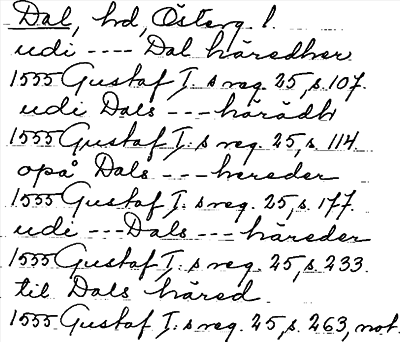 Dal, hd, Österg. l.
udi ---- Dal häredher
1555 Gustaf I:s reg. 25, s. 107.
udi Dals --- härädh
1555 Gustaf I:s reg. 25, s. 114.
opå Dals --- hereder
1555 Gustaf I:s reg. 25, s. 177.
udi --- Dals --- häreder
1555 Gustaf I:s reg. 25, s. 233.
til Dals häred.
1555 Gustaf I:s reg. 25, s. 263, not.